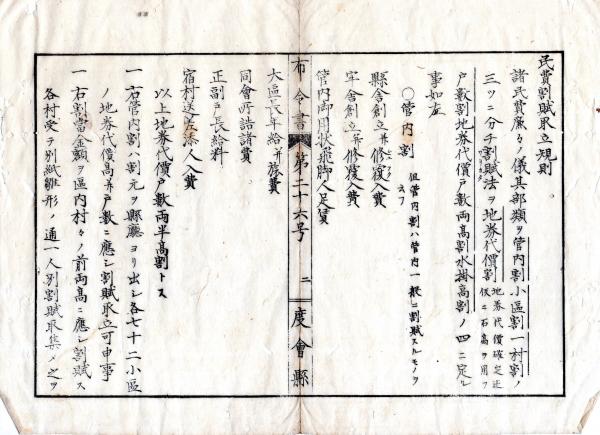 民費割賦取立規則
諸民費廉々ノ儀其部類ヲ管内割小區割一村割ノ
三ツニ分チ割賦法ヲ地券代價割 地券代價確定迄
仮ニ石高ヲ用フ
戸數割地券代價戸數両高割水掛高割ノ四ニ定レ
事如左
〇管内割 但管内割ハ管内一般ニ割賦スルモノヲ
云フ
縣舎創立并修覆入費
牢舎創立并修覆入費
管内御用状飛脚人足賃
布令書 第二十六号 二 度會縣
大區長年給并旅費
同會所諸費
正副戸長給料
宿村送 添人入費
以上地券代價戸數両半高割トス
一 右管内割ハ割元ヲ縣廳ヨリ出シ各七十二小區
ノ地券代價高并戸數ニ應シ割賦取立可申事
一 右割當金額ヲ區内村々ノ前両高ニ應シ割賦ス
各村受テ別紙雛形ノ通一人別割賦取集メ之ヲ